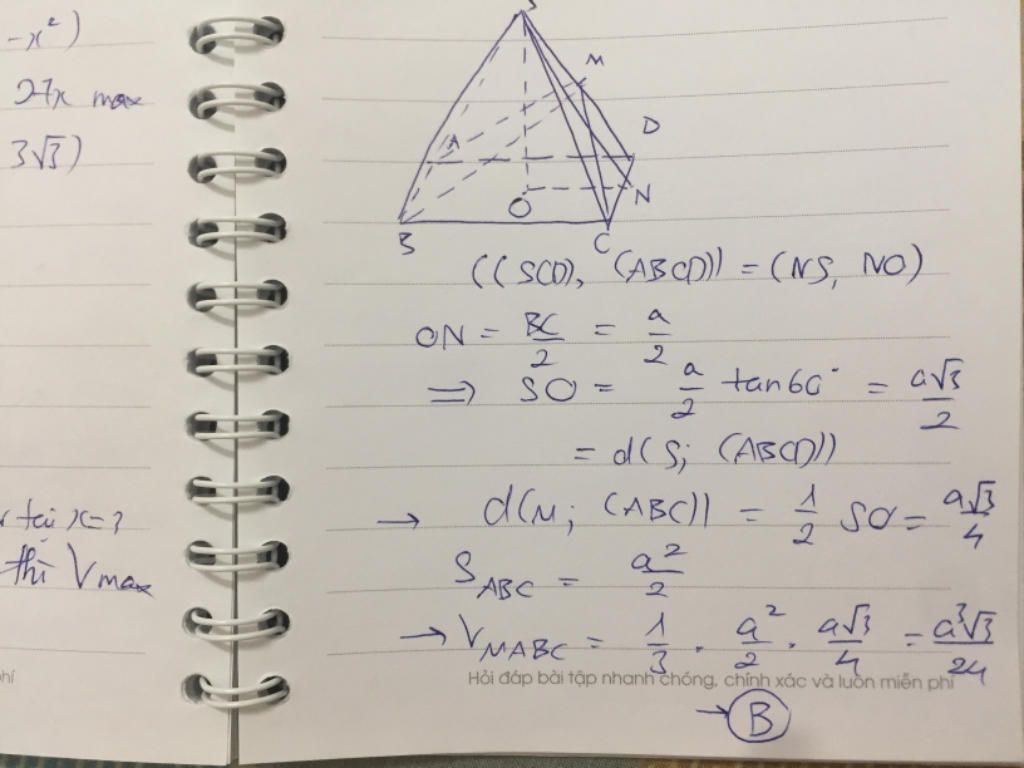 -x²)
27x max
3√3)
r tại x=3
thì Vmax
S
M
A
D
N
O
B
C
((SCD), (ABCD)) = (NS, NO)
ON = BC/2 = a/2
=> SO = a/2 tan60° = a√3/2
= d(S; (ABCD))
→ d(M; (ABC)) = 1/2 SO = a√3/4
S_ABC = a²/2
→ V_MABC = 1/3 . a²/2 . a√3/4 = a³√3/24
phí
Hỏi đáp bài tập nhanh chóng, chính xác và luôn miễn phí
→ B